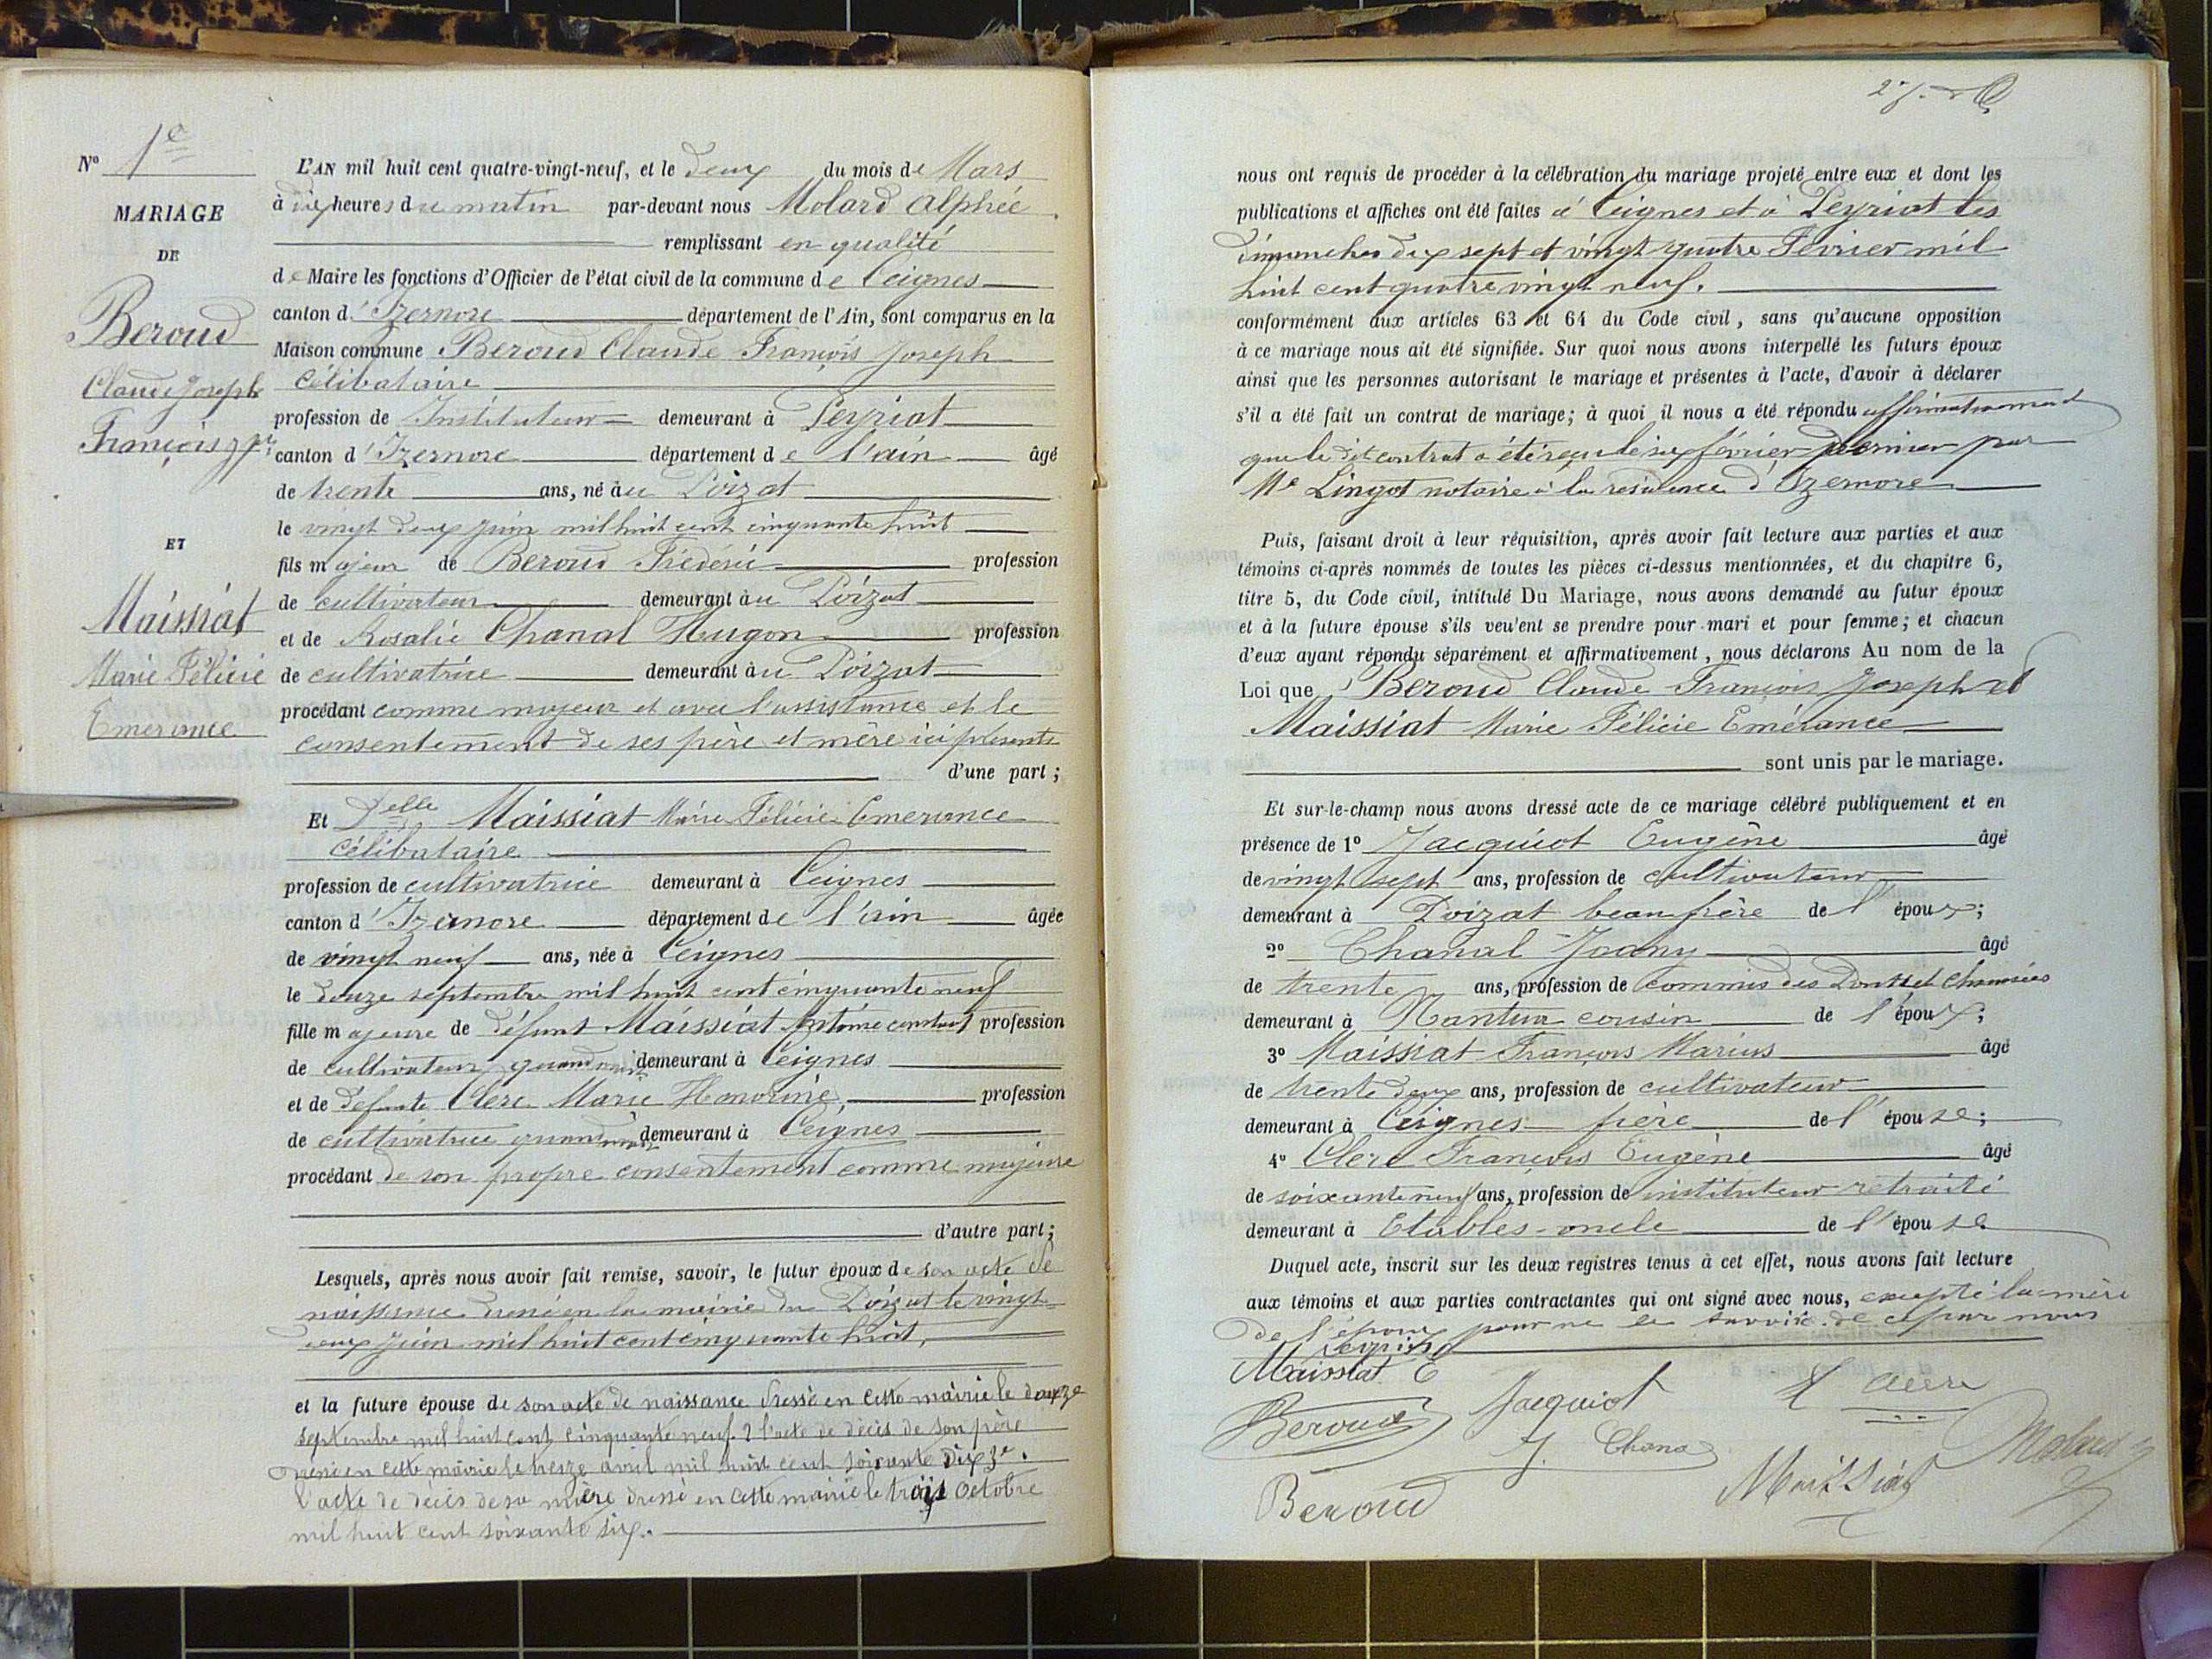 N° 1er
MARIAGE
DE
Beroud
Claude Joseph
François
ET
Maissiat
Marie Félicie
Emerance
L'AN mil huit cent quatre-vingt-neuf, et le deux du mois de Mars
à dix heures du matin par-devant nous Molard Alphée
remplissant en qualité
de Maire les fonctions d'Officier de l'état civil de la commune de Ceignes
canton d'Izernore département de l'Ain, sont comparus en la
Maison commune Beroud Claude François Joseph
célibataire
profession de Instituteur demeurant à Peyriat
canton d'Izernore département de l'ain âgé
de trente ans, né au Poizat
le vingt deux juin mil huit cent cinquante huit
fils majeur de Beroud Frédéric profession
de cultivateur demeurant au Poizat
et de Rosalie Chanal Hugon profession
de cultivatrice demeurant au Poizat
procédant comme majeur et avec l'assistance et le
consentement de ses père et mère ici présents
d'une part ;
Et Delle Maissiat Marie Félicie Emerance
célibataire
profession de cultivatrice demeurant à Ceignes
canton d'Izernore département de l'ain âgée
de vingt neuf ans, née à Ceignes
le douze septembre mil huit cent cinquante neuf
fille majeure de défunt Maissiat Antoine constant profession
de cultivateur quand demeurant à Ceignes
et de défunte Clerc Marie Honorine, profession
de cultivatrice quand demeurant à Ceignes
procédant de son propre consentement comme majeure
d'autre part ;
Lesquels, après nous avoir fait remise, savoir, le futur époux de son acte de
naissance dressé en la mairie du Poizat le vingt
deux juin mil huit cent cinquante huit,
et la future épouse de son acte de naissance dressé en cette mairie le douze
septembre mil huit cent cinquante neuf. 2 l'acte de décès de son père
dressé en cette mairie le treize avril mil huit cent soixante dix 3e.
l'acte de décès de sa mère dressé en cette mairie le trois octobre
mil huit cent soixante six.
nous ont requis de procéder à la célébration du mariage projeté entre eux et dont les
publications et affiches ont été faites à Ceignes et à Peyriat les
dimanches dix sept et vingt quatre Février mil
huit cent quatre vingt neuf.
conformément aux articles 63 et 64 du Code civil, sans qu'aucune opposition
à ce mariage nous ait été signifiée. Sur quoi nous avons interpellé les futurs époux
ainsi que les personnes autorisant le mariage et présentes à l'acte, d'avoir à déclarer
s'il a été fait un contrat de mariage; à quoi il nous a été répondu affirmativement
que le dit contrat a été reçu le six février dernier par
Me Lingot notaire à la résidence d'Izernore
Puis, faisant droit à leur réquisition, après avoir fait lecture aux parties et aux
témoins ci-après nommés de toutes les pièces ci-dessus mentionnées, et du chapitre 6,
titre 5, du Code civil, intitulé Du Mariage, nous avons demandé au futur époux
et à la future épouse s'ils veu'ent se prendre pour mari et pour femme; et chacun
d'eux ayant répondu séparément et affirmativement, nous déclarons Au nom de la
Loi que Beroud Claude François Joseph et
Maissiat Marie Félicie Emérance
sont unis par le mariage.
Et sur-le-champ nous avons dressé acte de ce mariage célébré publiquement et en
présence de 1° Jacquiot Eugène âgé
de vingt sept ans, profession de cultivateur
demeurant à Poizat beau frère de l'époux;
2° Chanal Joanny âgé
de trente ans, profession de commis des Ponts et Chaussées
demeurant à Nantua cousin de l'époux;
3° Maissiat François Marius âgé
de trente deux ans, profession de cultivateur
demeurant à Ceignes frère de l'épouse;
4° Clerc François Eugène âgé
de soixante neuf ans, profession de instituteur retraité
demeurant à Etables oncle de l'épouse
Duquel acte, inscrit sur les deux registres tenus à cet effet, nous avons fait lecture
aux témoins et aux parties contractantes qui ont signé avec nous, excepté la mère
de l'époux pour ne le savoir de ce par nous
requise
Maissiat E
Beroud Jacquiot Clerc
J. Chanal Molard
Beroud Maissiat